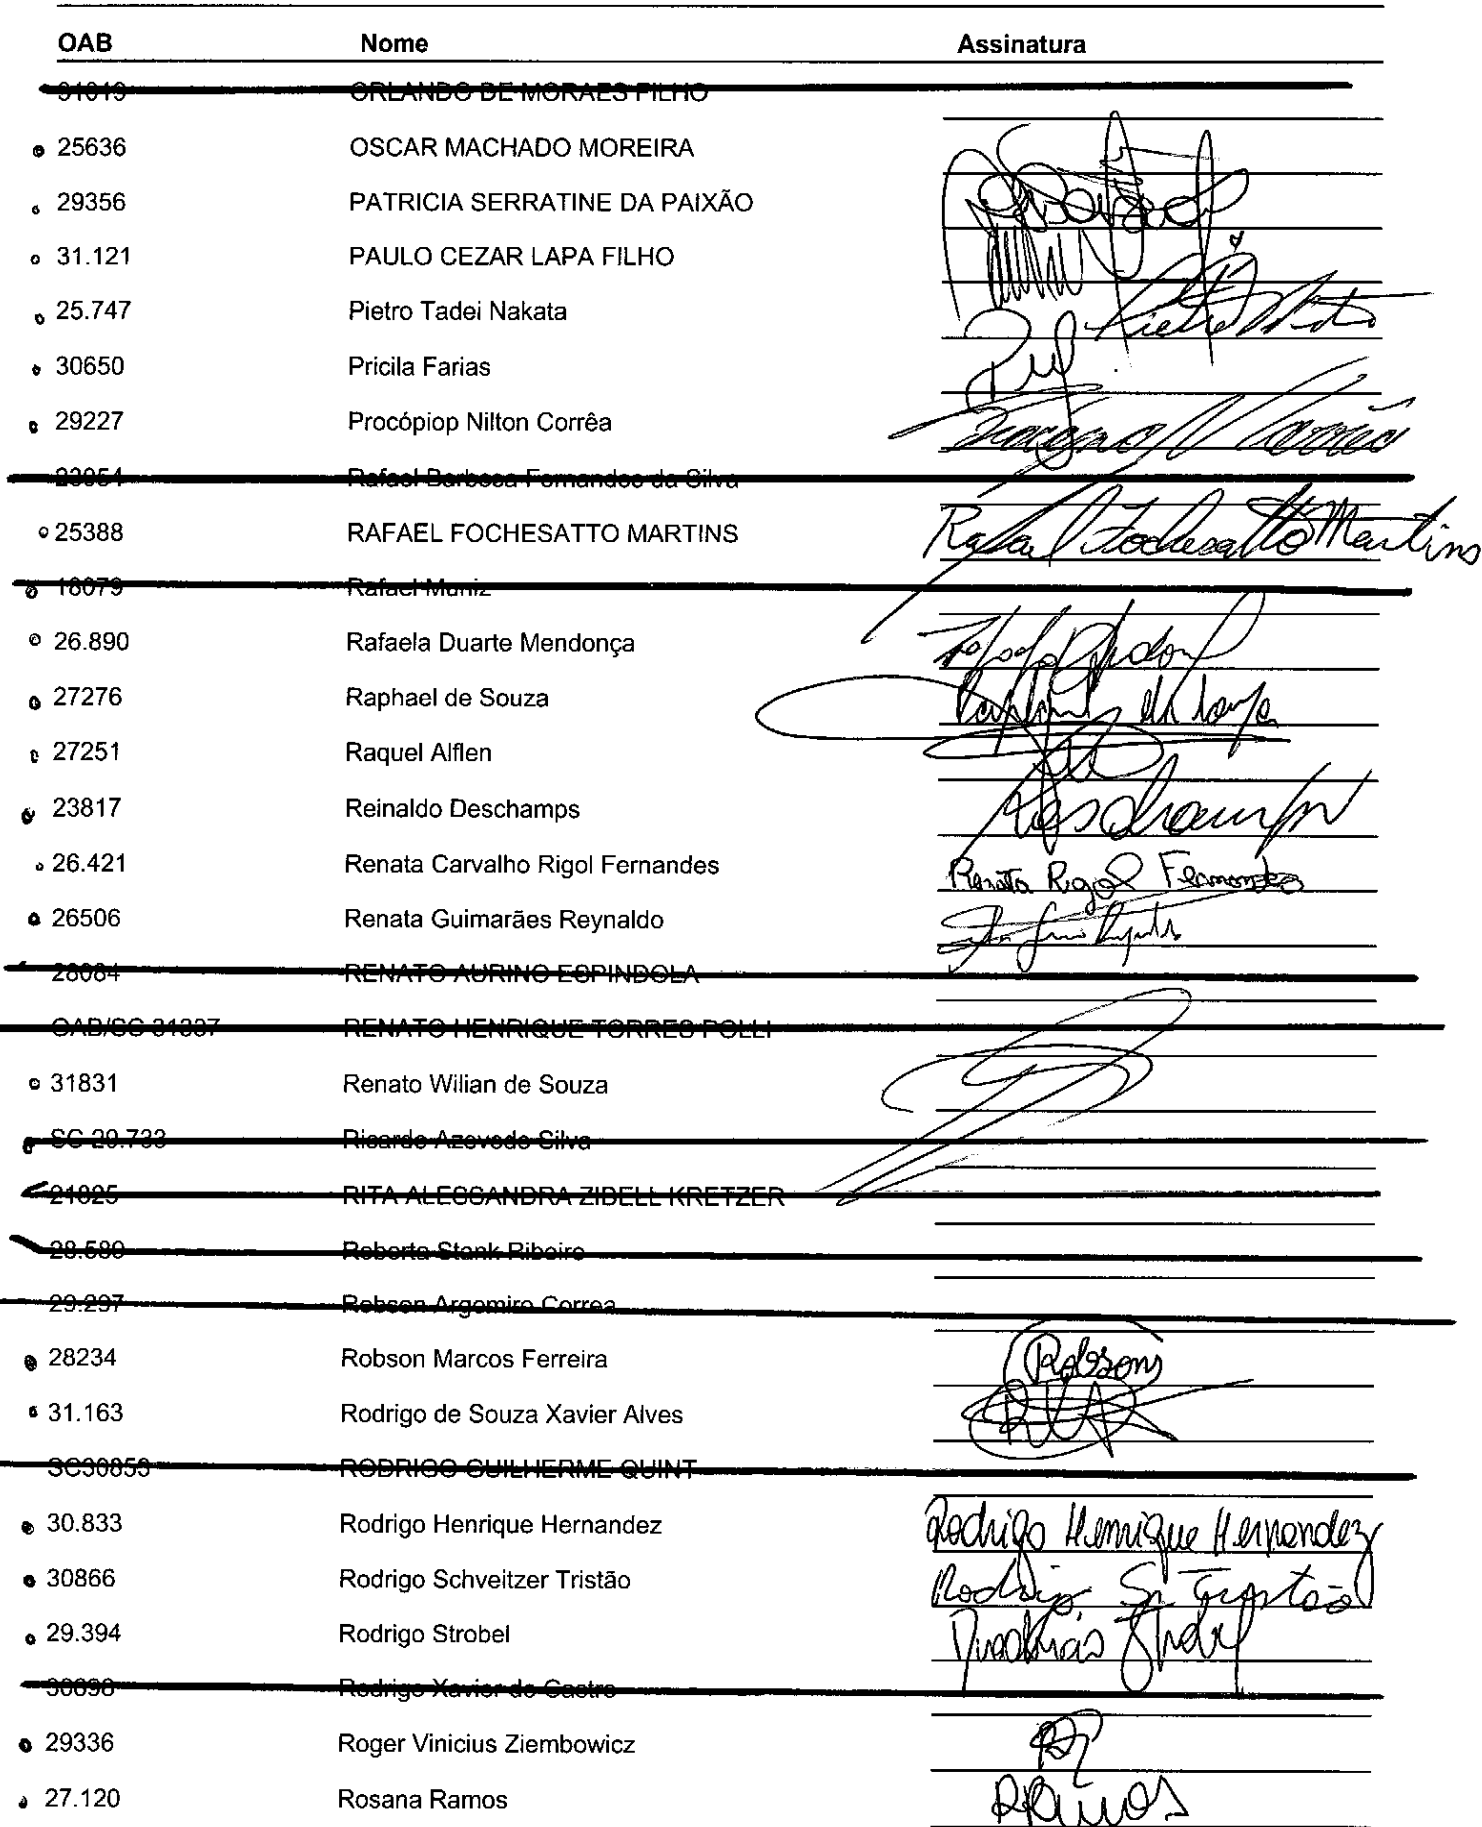 OAB Nome Assinatura
31019 ORLANDO DE MORAES FILHO
25636 OSCAR MACHADO MOREIRA
29356 PATRICIA SERRATINE DA PAIXÃO
31.121 PAULO CEZAR LAPA FILHO
25.747 Pietro Tadei Nakata
30650 Pricila Farias
29227 Procópiop Nilton Corrêa
Rafael Barbosa Fernandes da Silva
25388 RAFAEL FOCHESATTO MARTINS Rafael Fochesatto Martins
18079 Rafael Muniz
26.890 Rafaela Duarte Mendonça
27276 Raphael de Souza
27251 Raquel Alflen
23817 Reinaldo Deschamps
26.421 Renata Carvalho Rigol Fernandes Renata Rigol Fernandes
26506 Renata Guimarães Reynaldo
RENATO AURINO ESPINDOLA
RENATO HENRIQUE TORRES POLLI
31831 Renato Wilian de Souza
SC 20.733 Ricardo Azevedo Silva
RITA ALESSANDRA ZIBELL KRETZER
28.580 Ribeiro
29.297 Robson Argemiro Correa
28234 Robson Marcos Ferreira Robson
31.163 Rodrigo de Souza Xavier Alves
SC30853 RODRIGO GUILHERME QUINT
30.833 Rodrigo Henrique Hernandez Rodrigo Henrique Hernandez
30866 Rodrigo Schveitzer Tristão Rodrigo S. Tristão
29.394 Rodrigo Strobel
Rodrigo Xavier de Castro
29336 Roger Vinicius Ziembowicz
27.120 Rosana Ramos RRamos